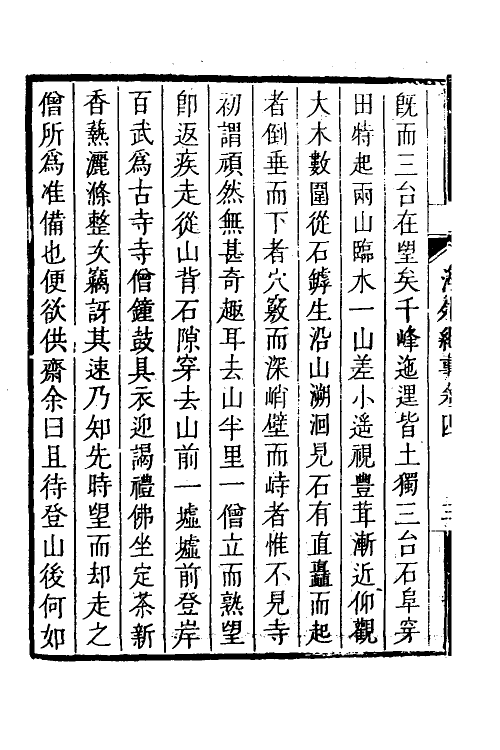 既而三台在望矣千峰迤𨓦皆土獨三台石阜穿
田特起兩山臨水一山差小遥視豐茸漸近仰觀
大木數圍從石罅生沿山溯洄見石有直矗而起
者倒垂而下者穴竅而深峭壁而峙者惟不見寺
初謂頑然無甚奇趣耳去山半里一僧立而熟望
卽返疾走從山背石隙穿去山前一墟墟前登岸
百武爲古寺寺僧鐘鼓具衣迎謁禮佛坐定茶新
香爇灑滌整次竊訝其速乃知先時望而却走之
僧所爲准備也便欲供齋余曰且待登山後何如
海外紀事卷四
三